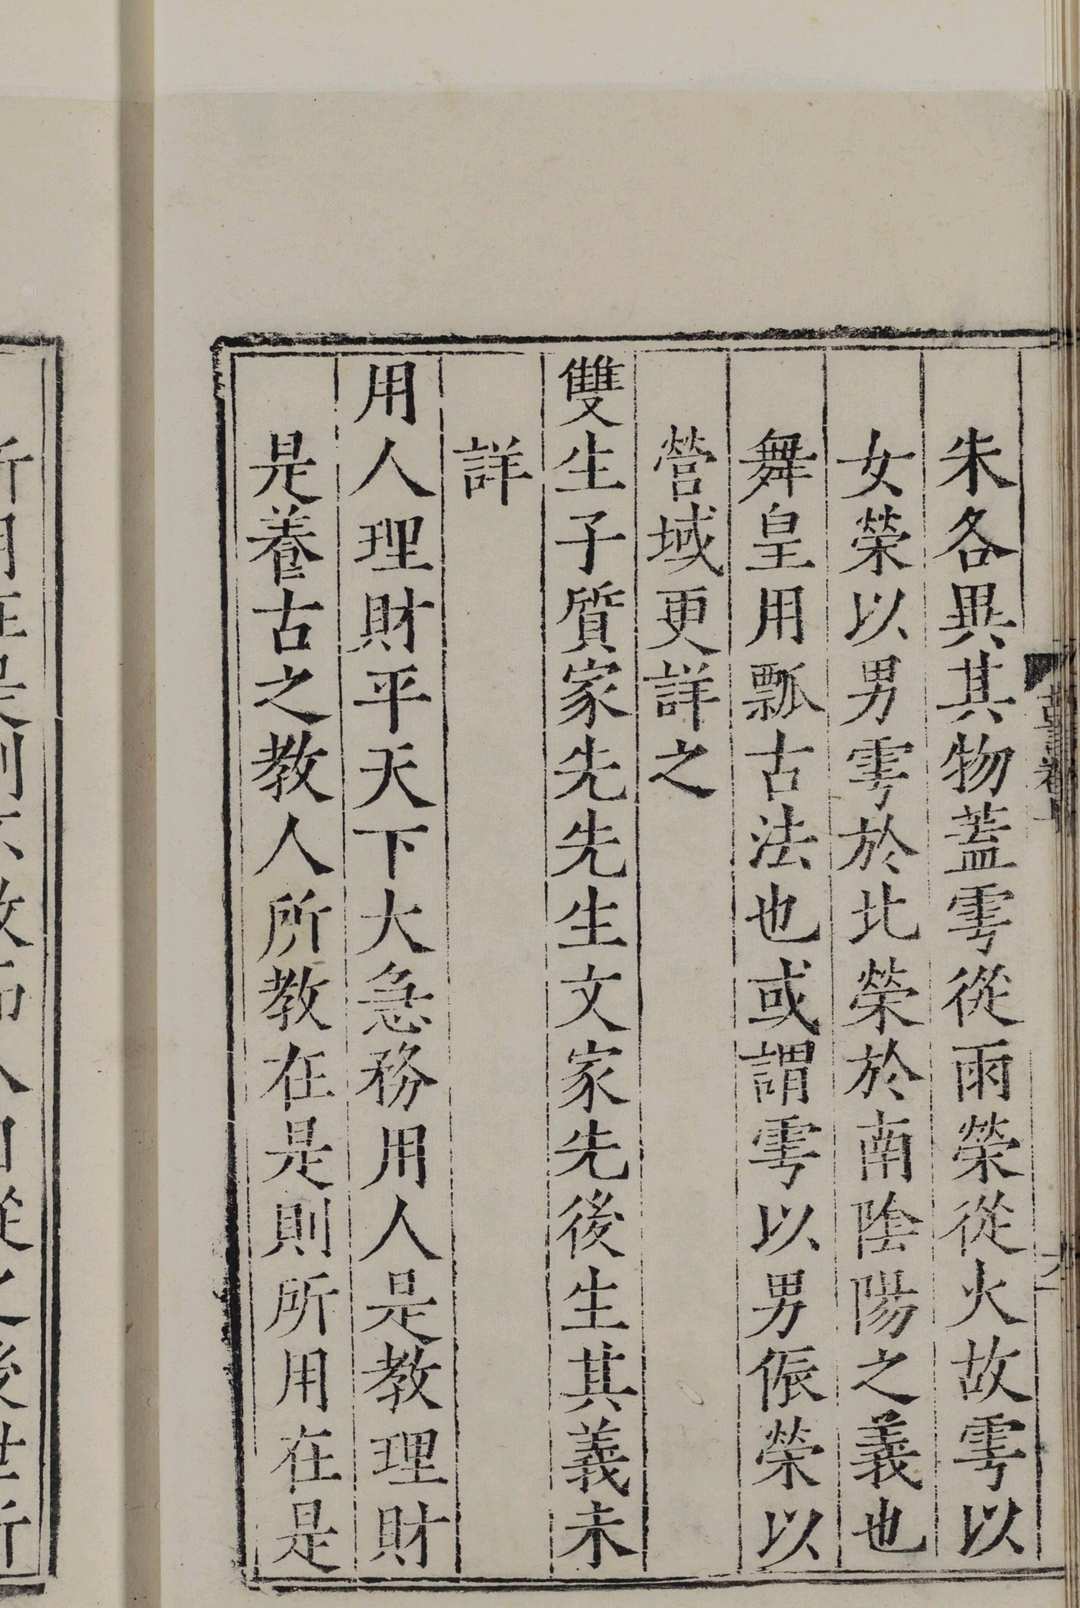 朱各異其物蓋雩從雨禜從火故雩以
女禜以男雩於北禜於南陰陽之義也
舞皇用瓢古法也或謂雩以男侲禜以
營域更詳之
雙生子質家先先生文家先後生其義未
詳
用人理財平天下大急務用人是教理財
是養古之教人所教在是則所用在是